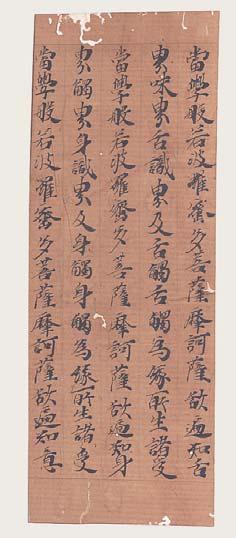 當學般若波羅蜜多菩薩摩訶薩欲遍知舌
界味界舌識界及舌觸舌觸為緣所生諸受
當學般若波羅蜜多菩薩摩訶薩欲遍知身
界觸界身識界及身觸身觸為緣所生諸受
當學般若波羅蜜多菩薩摩訶薩欲遍知意